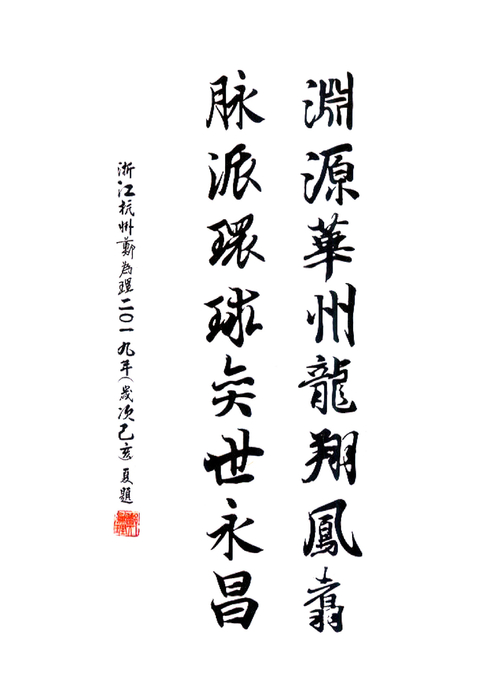 淵源華州龍翔鳳翥
脉派環球奕世永昌
浙江杭州鄭為理二〇一九年(歲次己亥)夏題